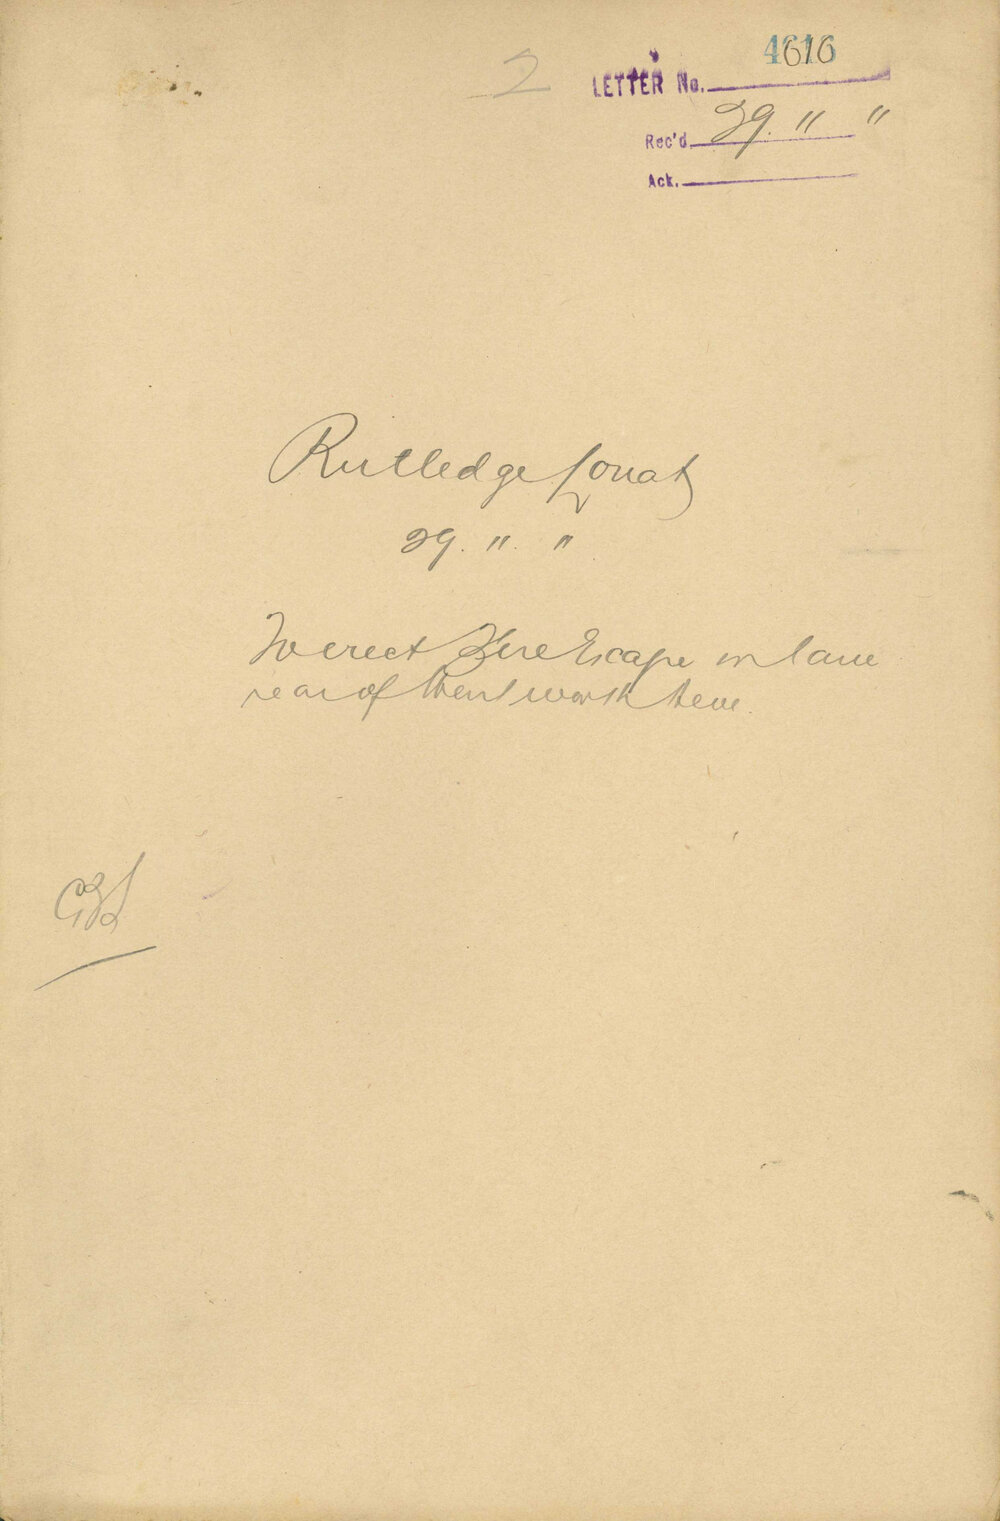 2
LETTER No. 4616
Rec'd 29. " "
Ack.
Rutledge
29. " "
To erect Fire Escape in lane
rear of Wentworth Aeve.